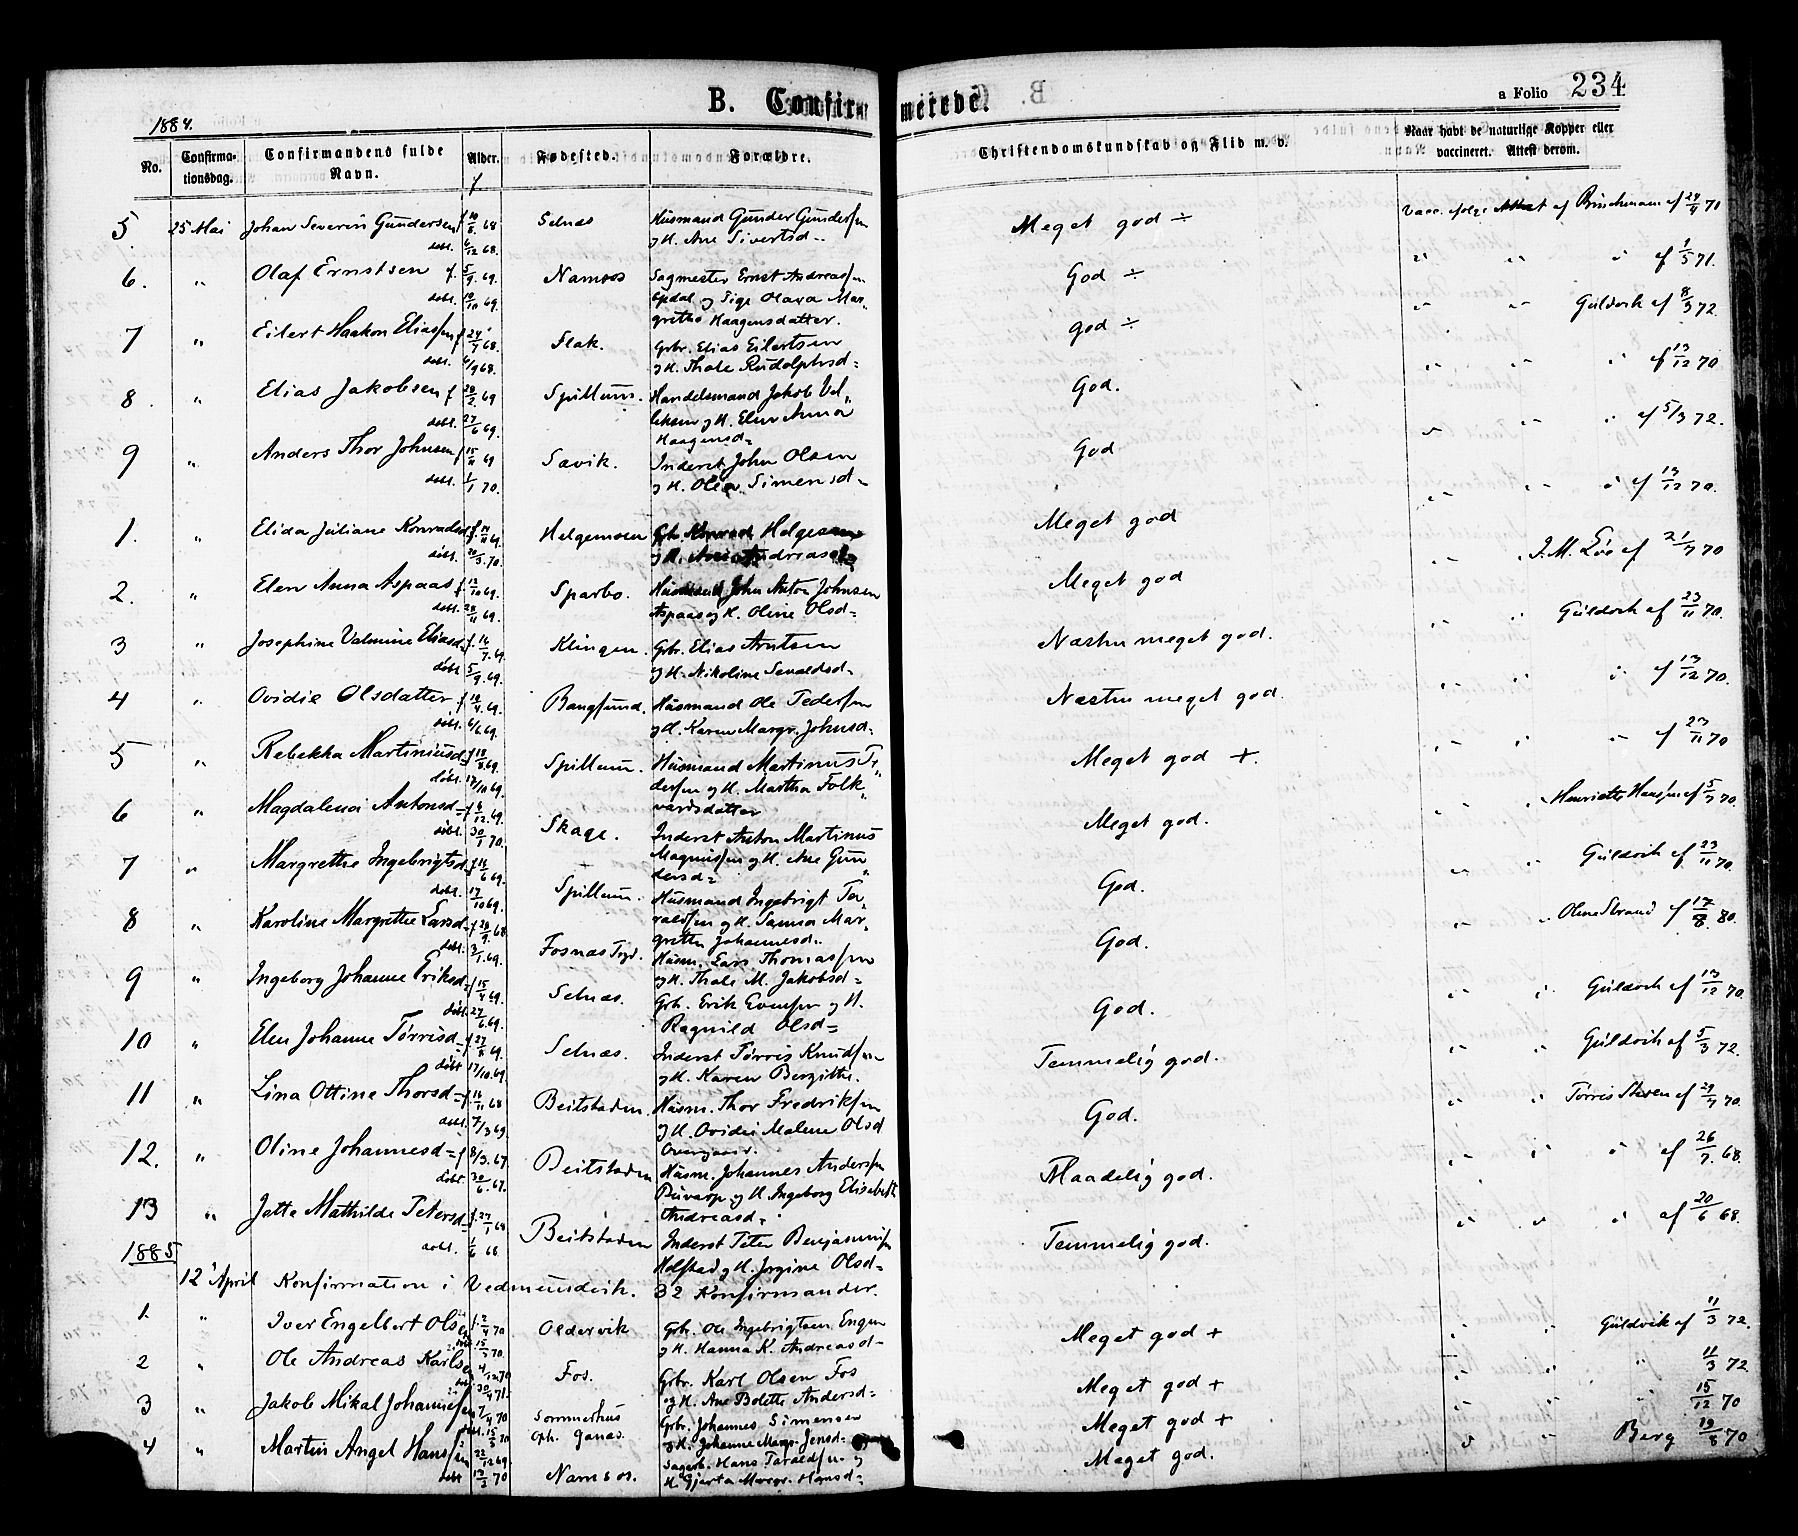 B. Confirmerede.
a Folio 234
1884.
No.
Confirmationsdag.
Confirmandens fulde Navn.
Alder.
Fødested.
Forældre.
Christendomskundskab og Flid m. v.
Naar havt de naturlige Kopper eller vaccineret. Attest derom.
5. 25 Mai Johan Severin Gundersen f. 68 Selnæs Husmand Gunder Gundersen Meget god ÷ vacc. følge Attest af Brinchmann af 24/9 71
døbt. 6/12 68. og H. Ane Sivertsd.
6. " Olaf Ernstsen f. 5/9. 69. Namsos Sagmester Ernst Andreassen God ÷ " " " af 1/5 71.
døbt. 10/10 69. Opdal og Pige Olava Mar-
grethe Haagensdatter.
7 " Eilert Haakon Eliassen f. 24/7 68. Flak. Grbr. Elias Eilertsen god ÷ " " Guldvik af 8/3 72.
døbt. 6/9 68. og H. Thale Rudolphsd=
8. " Elias Jakobsen f. 28/2. 69 Spillum. Handelsmand Jakob Vel- God. " " " af 13/12 70
døbt. 27/6 69. leksen og H. Elen Anna
Haagensd=
9 " Anders Thor Johnsen f. 15/11 69 Sævik. Inderst John Olsen God " " " af 5/3 72.
døbt. 1/1 70. og H. Olea Simensd=
1. " Elida Juliane Konradsd. f. 14/11 69. Helgemoen Grb. Konrad Helgesen Meget god " " " af 13/12 70.
døbt. 20/3. 70. og H. Andreasd
2. " Elen Anna Aspaas f. 12/10 69. Sparbo. Husmand John Anton Johnsen Meget god " " J. M. Løe af 21/7 70
døbt. 28/11 69. Aspaas og H. Oline Olsd=
3 " Josephine Valmine Eliasd. f. 16/7. 69. Klingen. Grb. Elias Arntsen Næsten meget god. " " Guldvik af 23/11 70.
døbt 5/9. 69. og H. Nikoline Sevaldsd=
4 " Ovidie Olsdatter f. 10/4. 69. Bangsund. Husmand Ole Pedersen Næsten meget god. " " " af 13/12 70.
døbt. 6/6 69. og H. Karen Margr. Johnsd=
5 " Rebekka Martinusd= f. 18/8 69. Spillum. Husmand Martinus Pe- Meget god +. " " " af 23/11 70
døbt. 17/10 69. dersen og H. Martha Folk-
vardsdatter
6 " Magdalena Antonsd= f. 6/12. 69. Skage. Inderst Anton Martinus Meget god. " " Henriette Hansen af 5/7 70.
døbt. 30/1 70. Magnussen og H. Ane Gun-
dersd=
7 " Margrethe Ingebrigtsd. f. 14/6 69. Spillum. Husmand Ingebrigt Ta- God. " " Guldvik af 23/11 70.
døbt. 17/10 69. raldsen og H. Sanna Mar-
grethe Johannesd.
8 " Karoline Margrethe Larsd= f. 28/9. 68 Fosnæs Prgd. Husm. Lars Thomassen God. " " Oline Strand af 17/8. 80.
døbt. 3/1. 69. og H. Thale M. Jakobsd=
9 " Ingeborg Johanne Eriksd= f. 15/4 69. Selnæs. Grb. Erik Evensen og H. God. " " Guldvik af 13/12 70.
døbt. 27/6. 69. Ragnild Olsd=
10 " Elen Johanne Tørrisd= f. 27/8 69. Selnæs. Inderst Tørris Knudsen Temmelig god. " " Guldvik af 5/3 72.
døbt 17/10. 69. og H. Karen Bergithe.
11 " Lina Ottine Thorsd= f. 16/11 68 Beitstaden. Husm. Thor Fredriksen God. " " Tørris Steen af 29/7 70.
døbt. 7/3 69. og H. Ovidie Malene Olsd
Overgaard.
12. " Oline Johannesd= f. 8/3. 67. Beitstaden Husm. Johannes Andersen Maadelig god. " " " af 26/7. 68.
døbt. 30/6. 67. og H. Ingeborg Elisabeth
Andreasd.
13 " Jette Mathilde Petersd= f. 27/1 68 Beitstaden Inderst Peter Benjaminsen Temmelig god. " " " af 20/6 68.
døbt. 1/6 68 Holstad og H. Jørgine Olsd=
1885
12' April Konfirmation i Vedmundvik. 32 Konfirmander.
1. " Iver Engelbert Olsen f. 2/4 70 Oldervik Grb. Ole Ingebrigtsen Engen Meget god + " " Guldvik af 11/3 72.
og H. Hanna K. Andreasd=
2 " Ole Andreas Karlsen 4/12 70 Fos. Grbr. Karl Olsen Fos Meget god + " " " 11/3 72
døbt 30/4 71. og H. Ane Bolette Andersd=
3 " Jakob Mikal Johannessen 7/4 70 Sommerhus Grbr. Johannes Simensen Meget god + " " " 15/12 70
døbt. 15/5 70 oph. Ganæs. og H. Johanne Margr. Jensd=
4 " Martin Angel Hanssen 22/12 69 Namsos. Sagarb. Hans Taraldsen og Meget god. " " Berg 19/8 70
døbt 13/2 70 H. Gjerta Margr. Hansd=